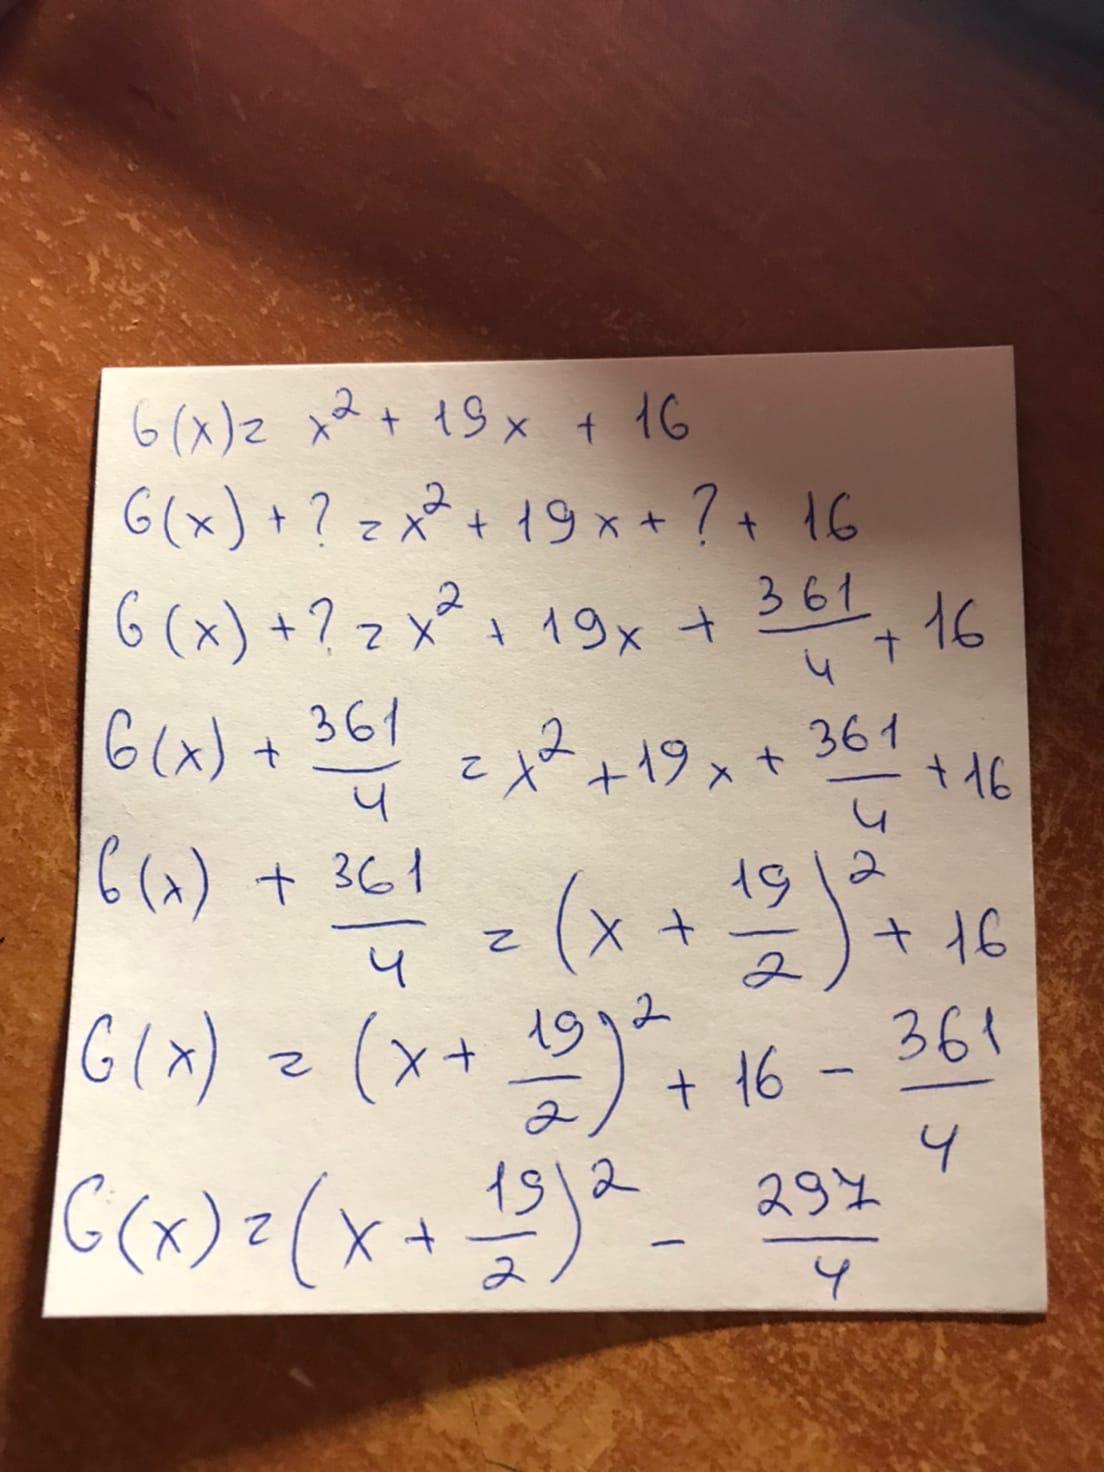 G(x) = x² + 19x + 16
G(x) + ? = x² + 19x + ? + 16
G(x) + ? = x² + 19x + 361/4 + 16
G(x) + 361/4 = x² + 19x + 361/4 + 16
G(x) + 361/4 = (x + 19/2)² + 16
G(x) = (x + 19/2)² + 16 - 361/4
G(x) = (x + 19/2)² - 297/4